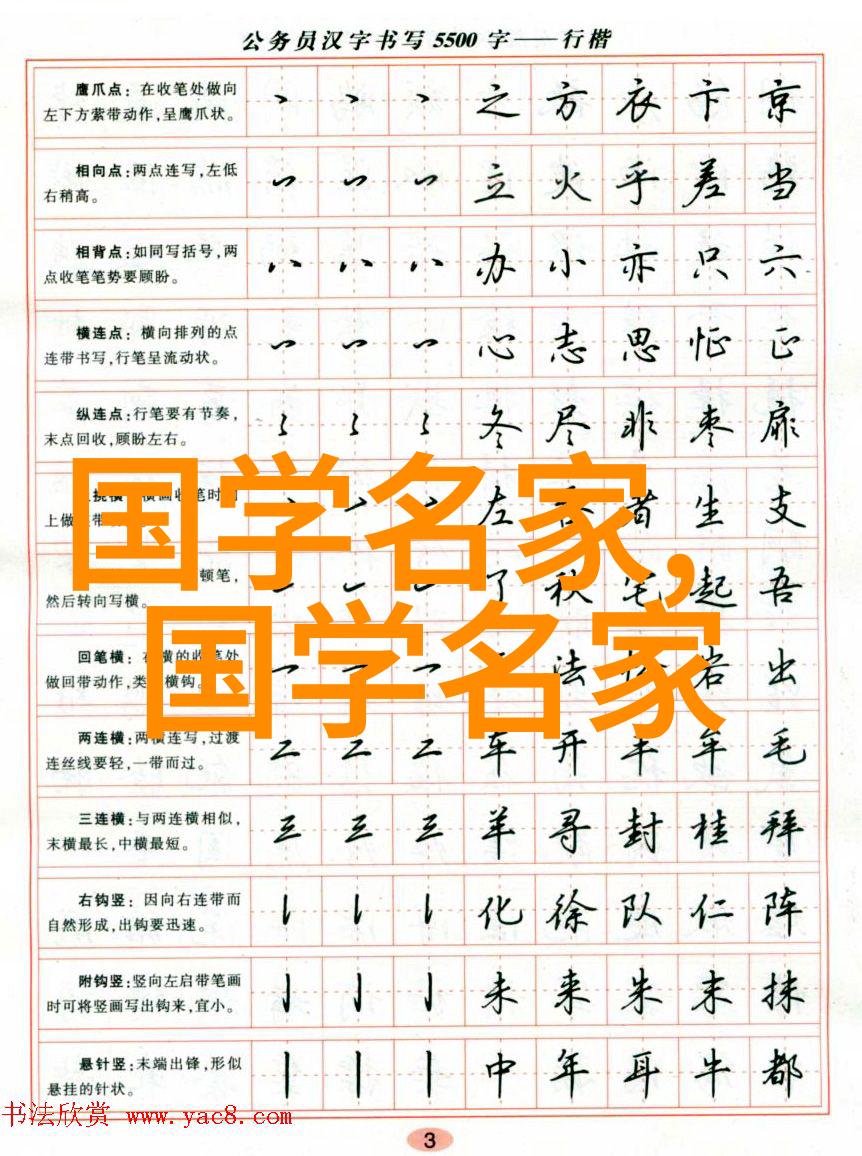 公务员汉字书写5500字——行楷
鹰爪点：在收笔处做向
左下方萦带动作，呈鹰爪状。
之 方 衣 卞 京
相向点：两点连写，左低
右稍高。
立 火 乎 差 当
相背点：如同写括号，两
点收笔笔势要顾盼。
办 小 亦 只 六
横连点：横向排列的点
连带书写，行笔呈流动状。
心 志 思 怔 正
纵连点：行笔要有节奏，
末点回收，顾盼左右。
冬 尽 非 枣 扉
挑横 横画收笔时
上做 带
左 者 生 支
国学名家，
顿笔，
然后转向写横。
了 秋 宅 起 吾
国学名家
回笔横：在横的收笔处
做回带动作，类 横钩。
法 岩 出
两连横：两横连写，过渡
连丝线要轻，一带而过。
车 开 丰 年 毛
三连横：与两连横相似，
末横最长，中横最短。
三 三 三 羊 寻 封 桂 拜
右钩竖：因向右连带而
自然形成，出钩要迅速。
化 徐 队 仁 阵
附钩竖：竖向左启带笔画
时可将竖画写出钩来，宜小。
未 来 朱 末 抹
悬针竖：末端出锋，形似
悬挂的针状。
中 年 耳 牛 都
书法欣赏 www.yac8.com
3